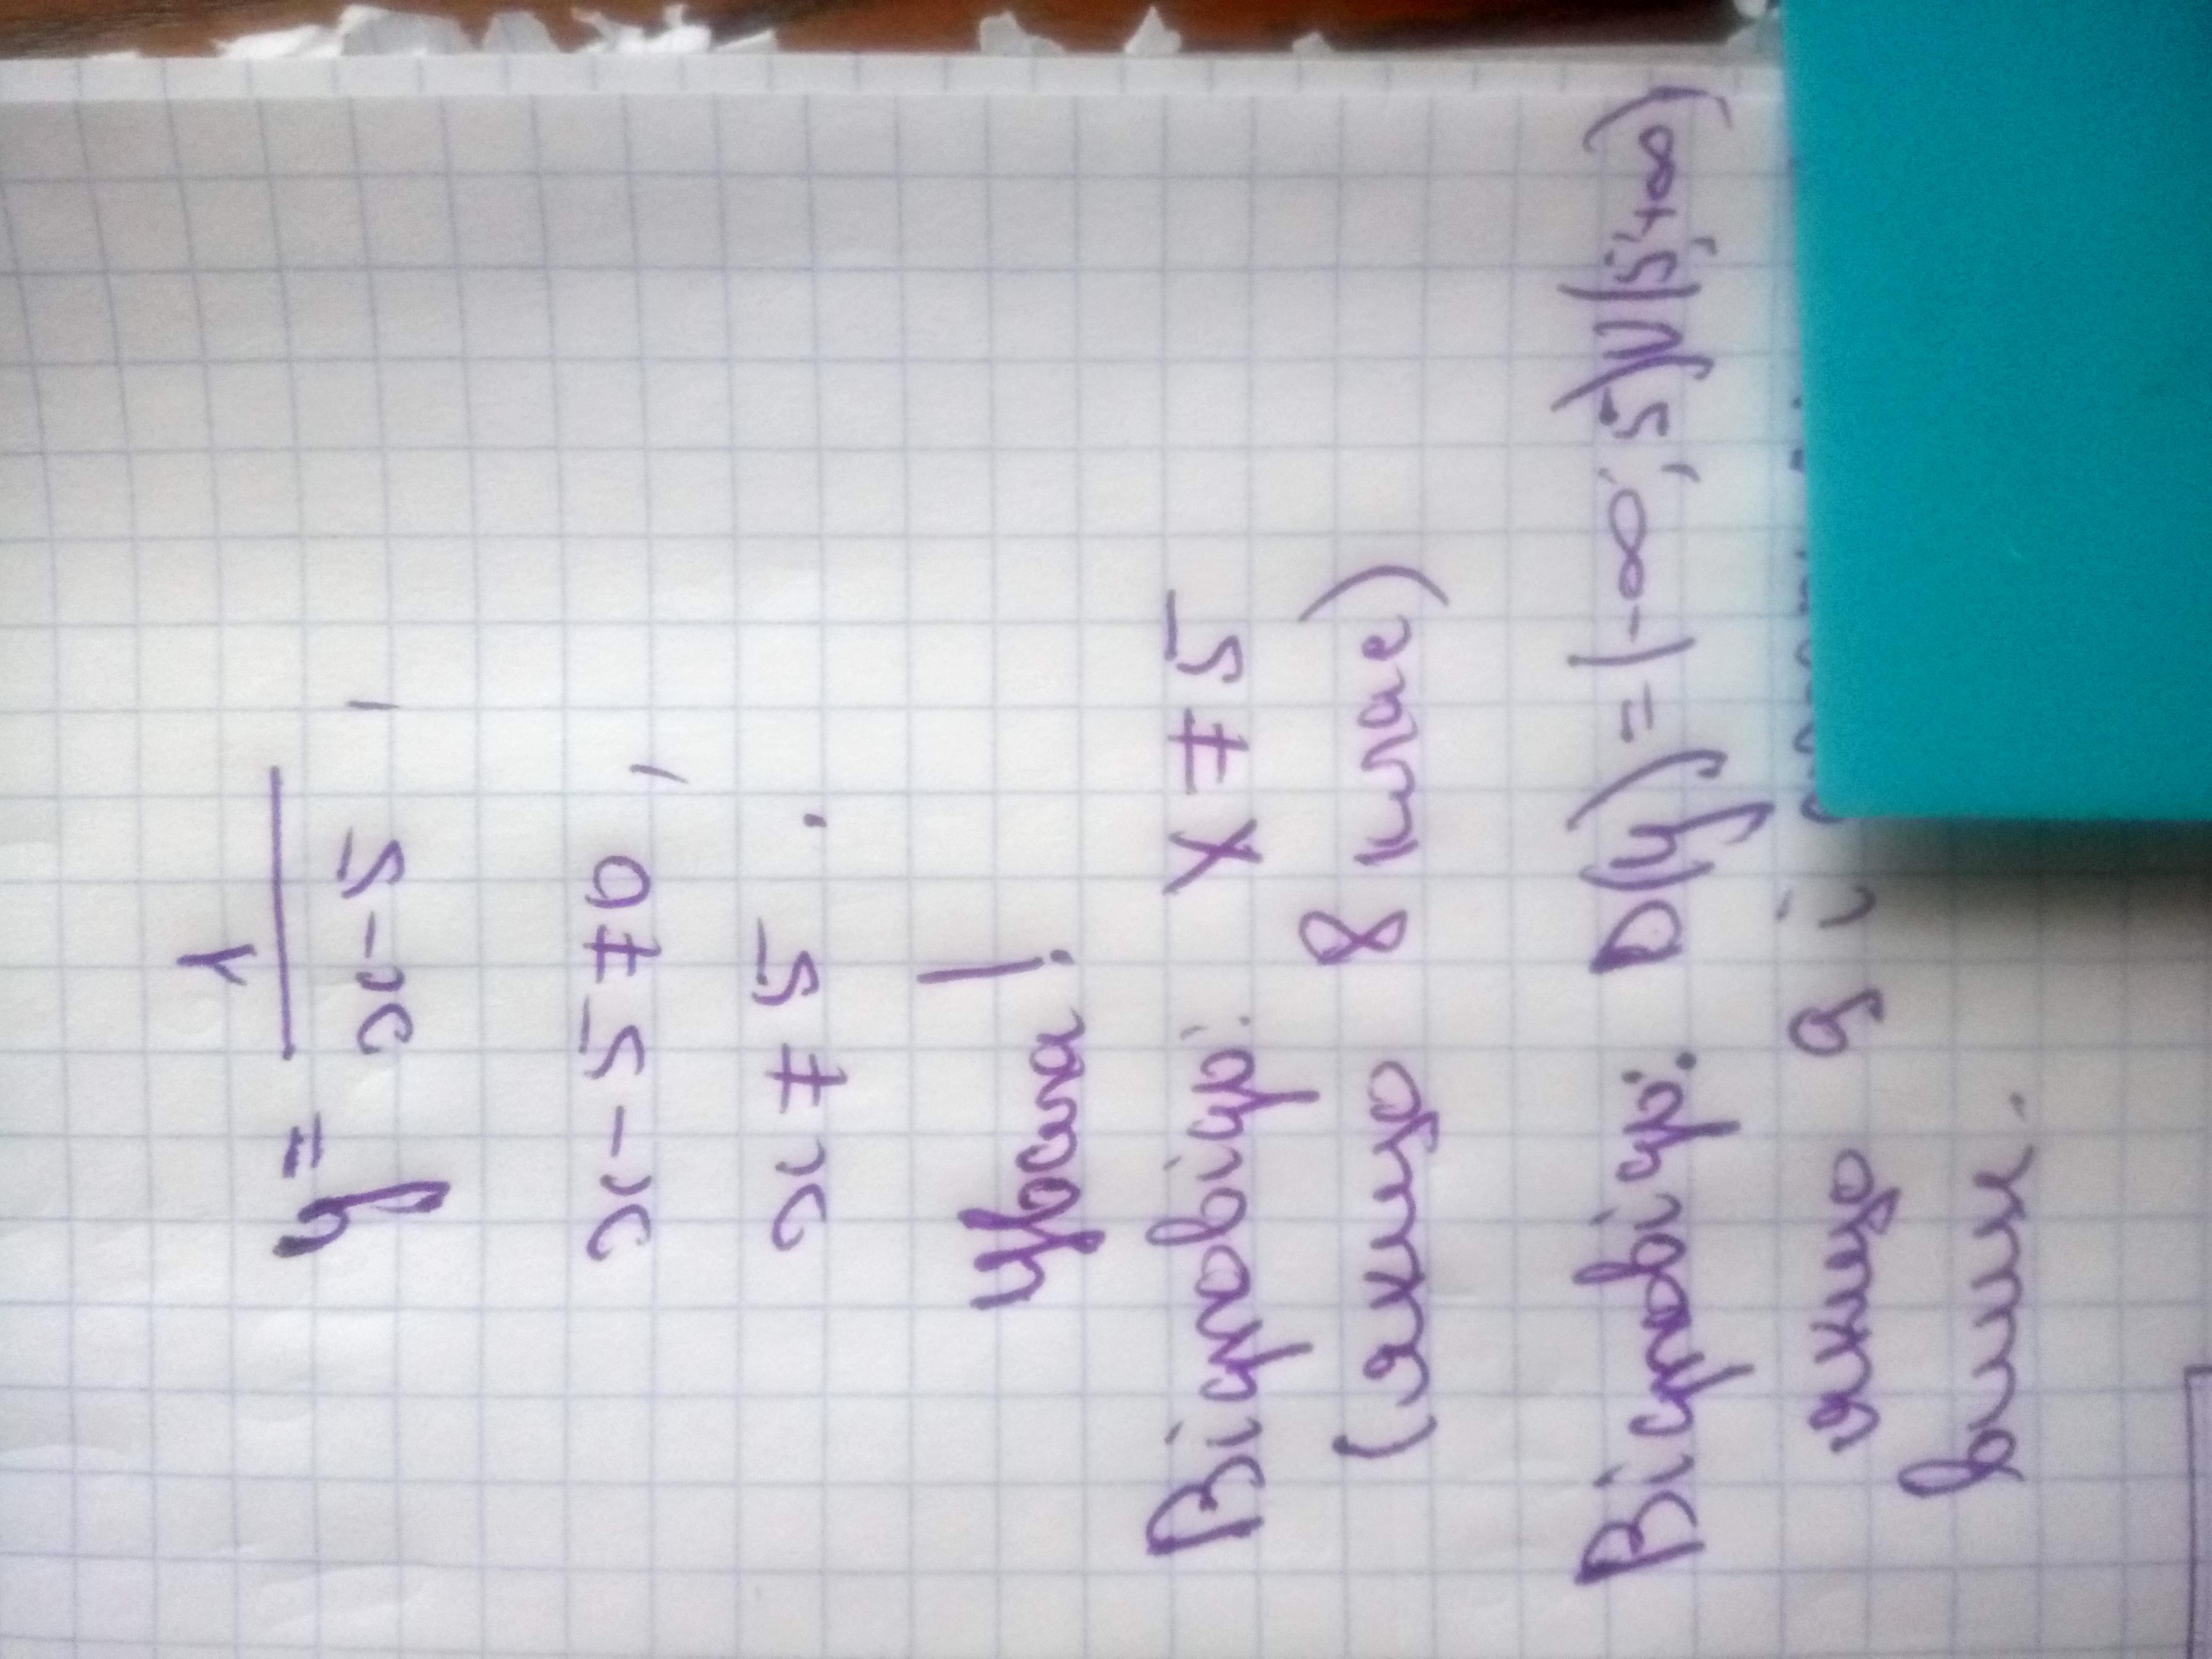 y = 1/(x-5),
x-5≠0,
x ≠ 5.
Увага!
Відповідь: x ≠ 5
(якщо 8 клас)
Відповідь: D(y) = (-∞; 5)∪(5;+∞)
якщо 9 і
вище.